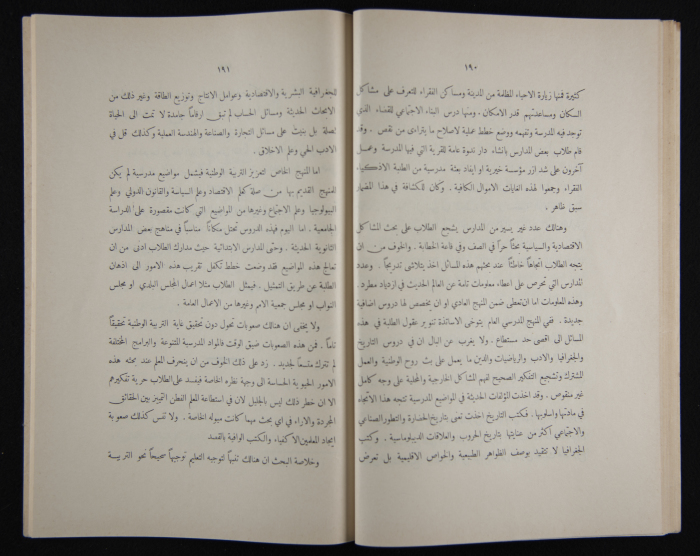 ١٩٠
كثيرة فمنها زيارة الاحياء المظلمة من المدينة ومساكن الفقراء للتعرف على مشاكل
السكان ومساعدتهم قدر الامكان. ومنها درس البناء الاجتماعي للقضاء الذي
توجد فيه المدرسة وتفهمه ووضع خطط عملية لاصلاح ما يتراءى من نقص . وقد
قام طلاب بعض المدارس بانشاء دار ندوة عامة للقرية التي فيها المدرسة وعمل
آخرون على شد ازر مؤسسة خيرية او ايفاد بعثة مدرسية من الطلبة الاذكياء
الفقراء وجمعوا لهذه الغايات الاموال الكافية . وكان للكشافة في هذا المضمار
سبق ظاهر .
وهنالك عدد غير يسير من المدارس يشجع الطلاب على بحث المشاكل
الاقتصادية والسياسية بحثاً حراً في الصف وفي قاعة الخطابة . والخوف من ان
يتجه الطلاب اتجاهاً خاطئاً عند بحثهم هذه المسائل اخذ يتلاشى تدريجاً . وعدد
المدارس التي تحرص على اعطاء معلومات تامة عن العالم الحديث في ازدياد مطرد .
وهذه المعلومات اما ان تعطى ضمن المنهج العادي او ان يخصص لها دروس اضافية
جديدة . ففي المنهج المدرسي العام يتوخى الاساتذة تنوير عقول الطلبة في هذه
المسائل الى اقصى حد مستطاع . ولا يغرب عن البال ان في دروس التاريخ
والجغرافيا والادب والرياضيات والدين ما يعمل على بث روح الوطنية والعمل
المشترك وتشجيع التفكير الصحيح لفهم المشاكل الخارجية والمحلية على وجه كامل
غير منقوص . وقد اخذت المؤلفات الحديثة في المواضيع المدرسية تتجه هذا الاتجاه
في مادتها واسلوبها . فكتب التاريخ اخذت تعنى بتاريخ الحضارة والتطور الصناعي
والاجتماعي اكثر من عنايتها بتاريخ الحروب والعلاقات الدبلوماسية . وكتب
الجغرافيا لا تتقيد بوصف الظواهر الطبيعية والخواص الاقليمية بل تعرض
١٩١
للجغرافية البشرية والاقتصادية وعوامل الانتاج وتوزيع الطاقة وغير ذلك من
الابحاث الحديثة ومسائل الحساب لم تبق ارقاماً جامدة لا تمت الى الحياة
بصلة بل بنيت على مسائل التجارة والصناعة والهندسة العملية وكذلك قل في
الادب الحي وعلم الاخلاق .
اما المنهج الخاص لتعزيز التربية الوطنية فيشمل مواضيع مدرسية لم يكن
للمنهج القديم بها من صلة كعلم الاقتصاد وعلم السياسة والقانون الدولي وعلم
البيولوجيا وعلم الاجتماع وغيرها من المواضيع التي كانت مقصورة على الدراسة
الجامعية . اما اليوم فهذه الدروس تحتل مكاناً مناسباً في مناهج بعض المدارس
الثانوية الحديثة . وحتى المدارس الابتدائية حيث مدارك الطلاب ادنى من ان
تعالج هذه المواضيع فقد وضعت خطط تكفل تقريب هذه الامور الى اذهان
الطلبة عن طريق التمثيل . فيمثل الطلاب مثلا اعمال المجلس البلدي او مجلس
النواب او مجلس جمعية الامم وغيرها من الاعمال العامة .
ولا يخفى ان هنالك صعوبات تحول دون تحقيق غاية التربية الوطنية تحقيقاً
تاماً . فمن هذه الصعوبات ضيق الوقت فالمواد المدرسية المتنوعة والبرامج المختلفة
لم تترك متسعاً لجديد . زد على ذلك الخوف من ان ينحرف المعلم عند بحثه هذه
الامور الحيوية الحساسة الى وجهة نظره الخاصة فيفسد على الطلاب حرية تفكيرهم
الا ان خطر ذلك ليس بالجليل لان في استطاعة المعلم الفطن التمييز بين الحقائق
المجردة والآراء في اي بحث مهما كانت ميوله الخاصة . ولا ننس كذلك صعوبة
ايجاد المعلمين الاكفياء والكتب الوافية بالقصد
وخلاصة البحث ان هنالك تنبهاً لتوجيه التعليم توجيهاً صحيحاً نحو التربية